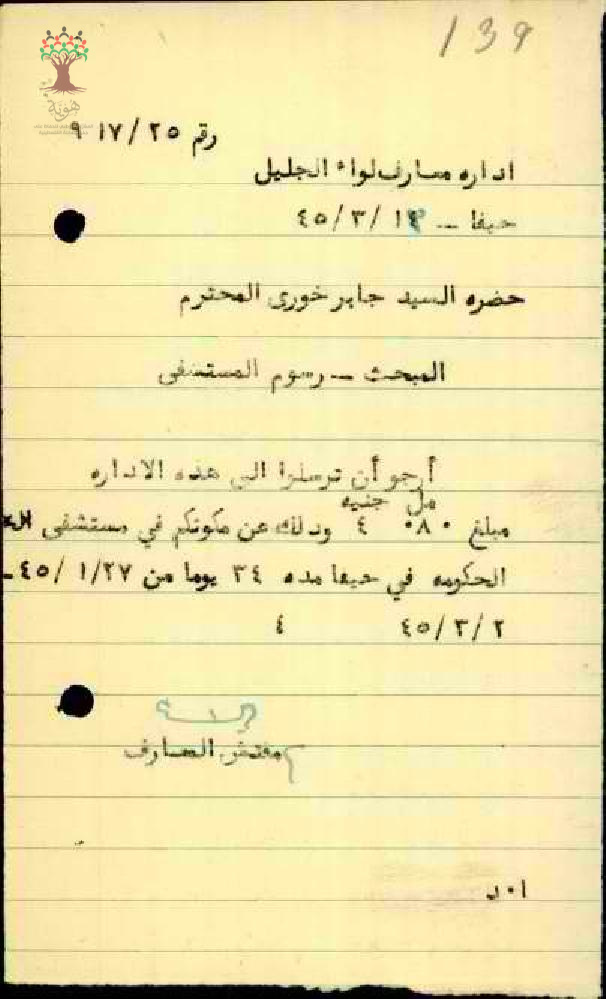 139
هوية
رقم ٢٥/١٧ ٩
اداره معارف لواء الجليل
حيفا - /٣/٤٥
حضره السيد جابر خورى المحترم
المبحث - رسوم المستشفى
أرجو أن ترسلوا الى هذه الاداره
مل جنيه
مبلغ ٠٨٠ ٤ وذلك عن مكوثكم في مستشفى
الحكومه في حيفا مده ٣٤ يوما من ١/٢٧ /٤٥ -
٤٥/٣/٢ ٤
مفتش المعارف
ا٠د